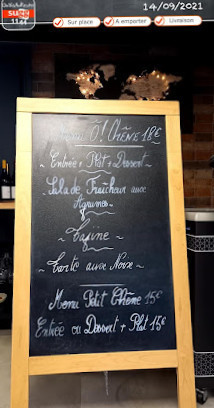 14/09/2021
Sur place
A emporter
Livraison
O! Chêne 18€
Entrée + Plat + Dessert
Salade Fraîcheur aux
Agrumes
Tarte aux Noix
Menu Petit Chêne 15€
Entrée ou Dessert + Plat 15€